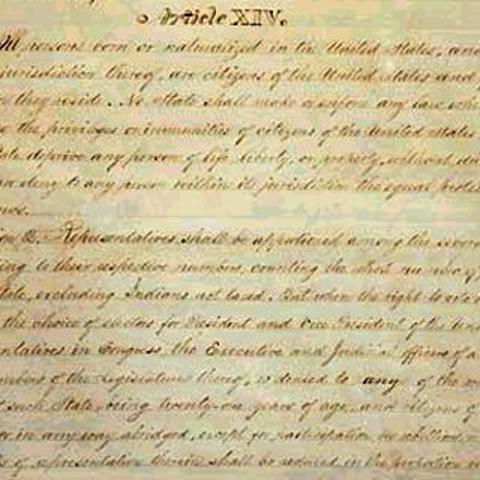 Article XIV.
All persons born or naturalized in the United States, and
jurisdiction thereof, are citizens of the United States and
they reside. No State shall make or enforce any law which
the privileges or immunities of citizens of the United States
State deprive any person of life, liberty, or property, without due
deny to any person within its jurisdiction the equal protec
laws.
2. Representatives shall be apportioned among the several
ing to their respective numbers, counting the whole number of
State, excluding Indians not taxed. But when the right to vote
the choice of electors for President and Vice President of the Uni
entatives in Congress, the Executive and Judicial officers of a
members of the Legislature thereof, is denied to any of the
such State, being twenty-one years of age, and citizens of
or in any way abridged, except for participation in rebellion, or
of representation therein shall be reduced in the proportion